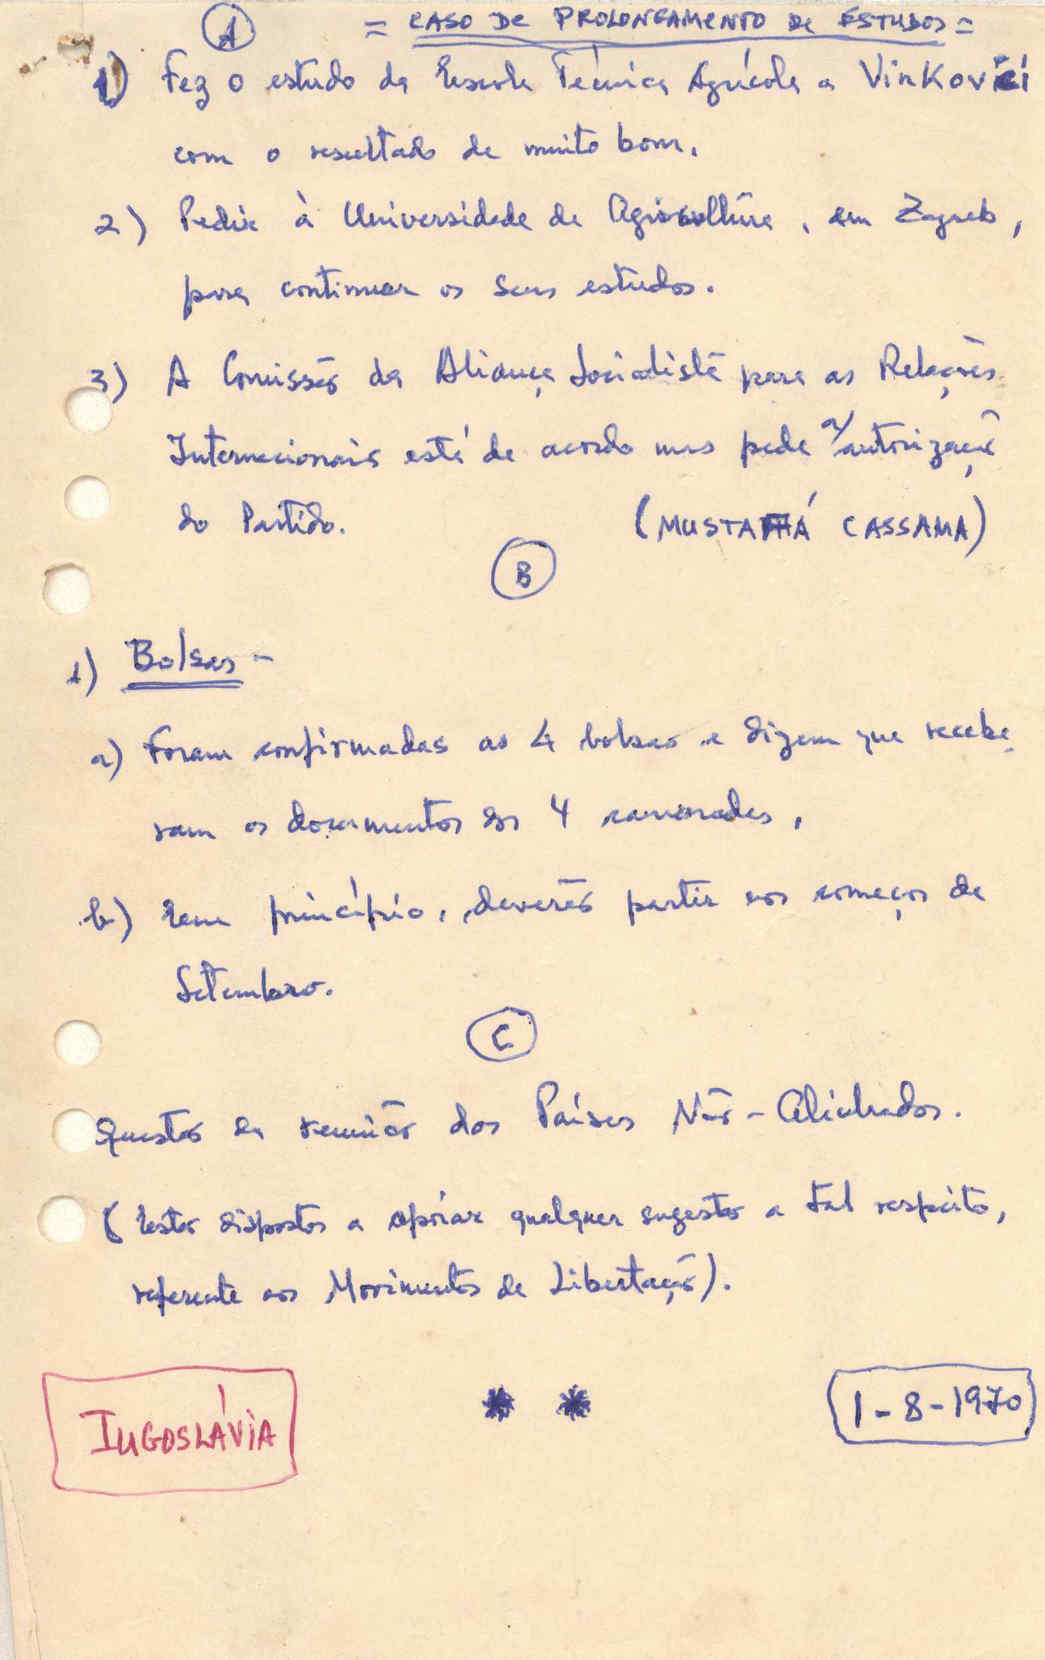 A
= CASO DE PROLONGAMENTO DE ESTUDOS =
1) Fez o estudo da Escola Técnica Agrícola a Vinkovići
com o resultado de muito bom.
2) Pedir à Universidade de Agricultura, em Zagreb,
para continuar os seus estudos.
3) A Comissão da Aliança Socialista para as Relações
Internacionais está de acordo mas pede a/ autorização
do Partido. (MUSTAFÁ CASSAMA)
B
1) Bolsas -
a) Foram confirmadas as 4 bolsas e dizem que recebe
ram os documentos dos 4 camaradas.
b) Em princípio, deverão partir nos começos de
Setembro.
C
Questão da reunião dos Países Não-Alinhados.
(Estão dispostos a apoiar qualquer sugestão a tal respeito,
referente aos Movimentos de Libertação).
IUGOSLÁVIA
* *
1-8-1970